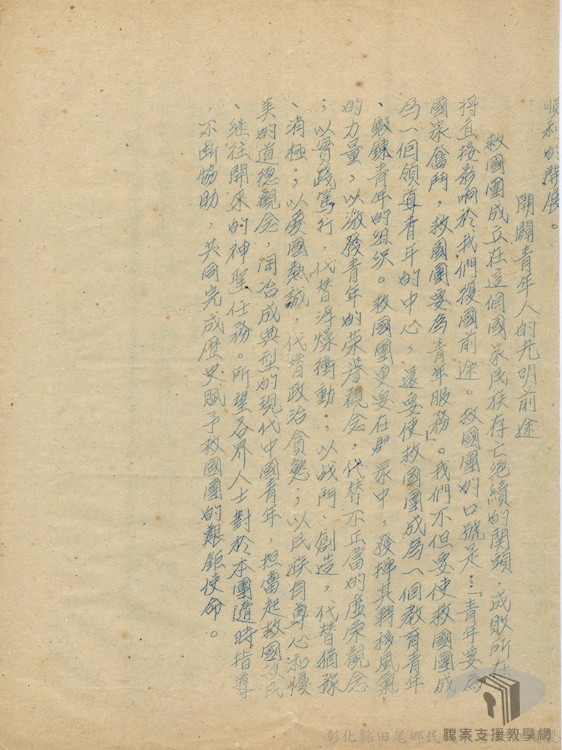 順利的開展。
開闢青年人的光明前途
救國團成立在這個國家民族存亡絕續的関頭，成敗所在
將直接影响於我們復國前途。救國團的口號是：「青年要為
國家奮鬥，救國團要為青年服務」。我們不但要使救國團成
為一個領導青年的中心，還要使救國團成為一個教育青年
、鍛鍊青年的組织。救國團更要在群众中，發揮其轉移風氣
的力量，以激發青年的荣譽觀念，代替不正當的虛荣觀念
；以實践篤行，代替浮燥衝動；以战鬥、創造，代替猶豫
、消極；以爱國熱誠，代替政治貪慾；以民族自尊心和優
美的道德觀念，陶冶成典型的現代中國青年，担當起救國
、継往開來的神聖任務。所望各界人士對於本團隨時指導
，不断協助，共同完成歷史賦予救國團的艱鉅使命。
彰化縣田尾鄉民
檔案支援教學網